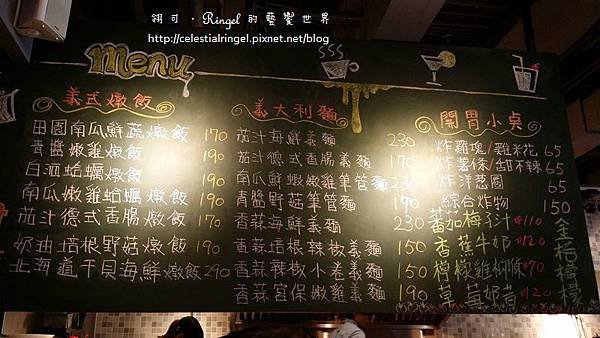 翊可·Ringel 的藝饗世界
http://celestialringel.pixnet.net/blog
menu
義式燉飯
田園南瓜鮮蔬燉飯 170
青醬嫩雞燉飯 190
白酒蛤蠣燉飯 190
南瓜嫩雞蛤蠣燉飯 190
茄汁德式香腸燉飯 170
奶油培根野菇燉飯 190
北海道干貝海鮮燉飯 290
義大利麵
茄汁海鮮義麵 230
茄汁德式香腸義麵 170
南瓜鮮蝦嫩雞筆管麵 230
青醬野菇筆管麵 190
香蒜海鮮義麵 230
香蒜培根辣椒義麵 150
香蒜辣椒小卷義麵 150
香蒜宮保嫩雞義麵 190
開胃小桌
炸雞塊/雞米花 65
炸薯條/甜不辣 65
炸洋蔥圈 65
綜合炸物 150
蕃茄梅子汁 $110
香蕉牛奶 $120
檸檬雞柳條 $70
草莓奶青 $120
金桔檸檬